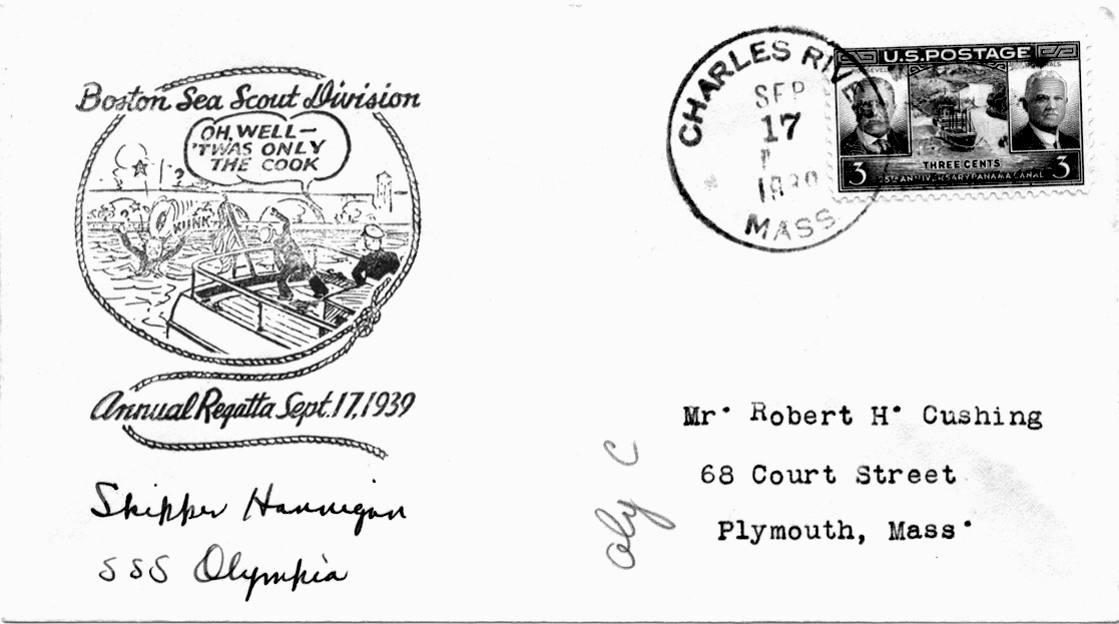 Boston Sea Scout Division
OH, WELL—
'TWAS ONLY
THE COOK
KLINK
Annual Regatta Sept. 17, 1939
Skipper Hannigan
SSS Olympia
CHARLES RIVE
SEP
17
MASS
U.S. POSTAGE
3 THREE CENTS 3
25TH ANNIVERSARY PANAMA CANAL
Oly C
Mr. Robert H. Cushing
68 Court Street
Plymouth, Mass.